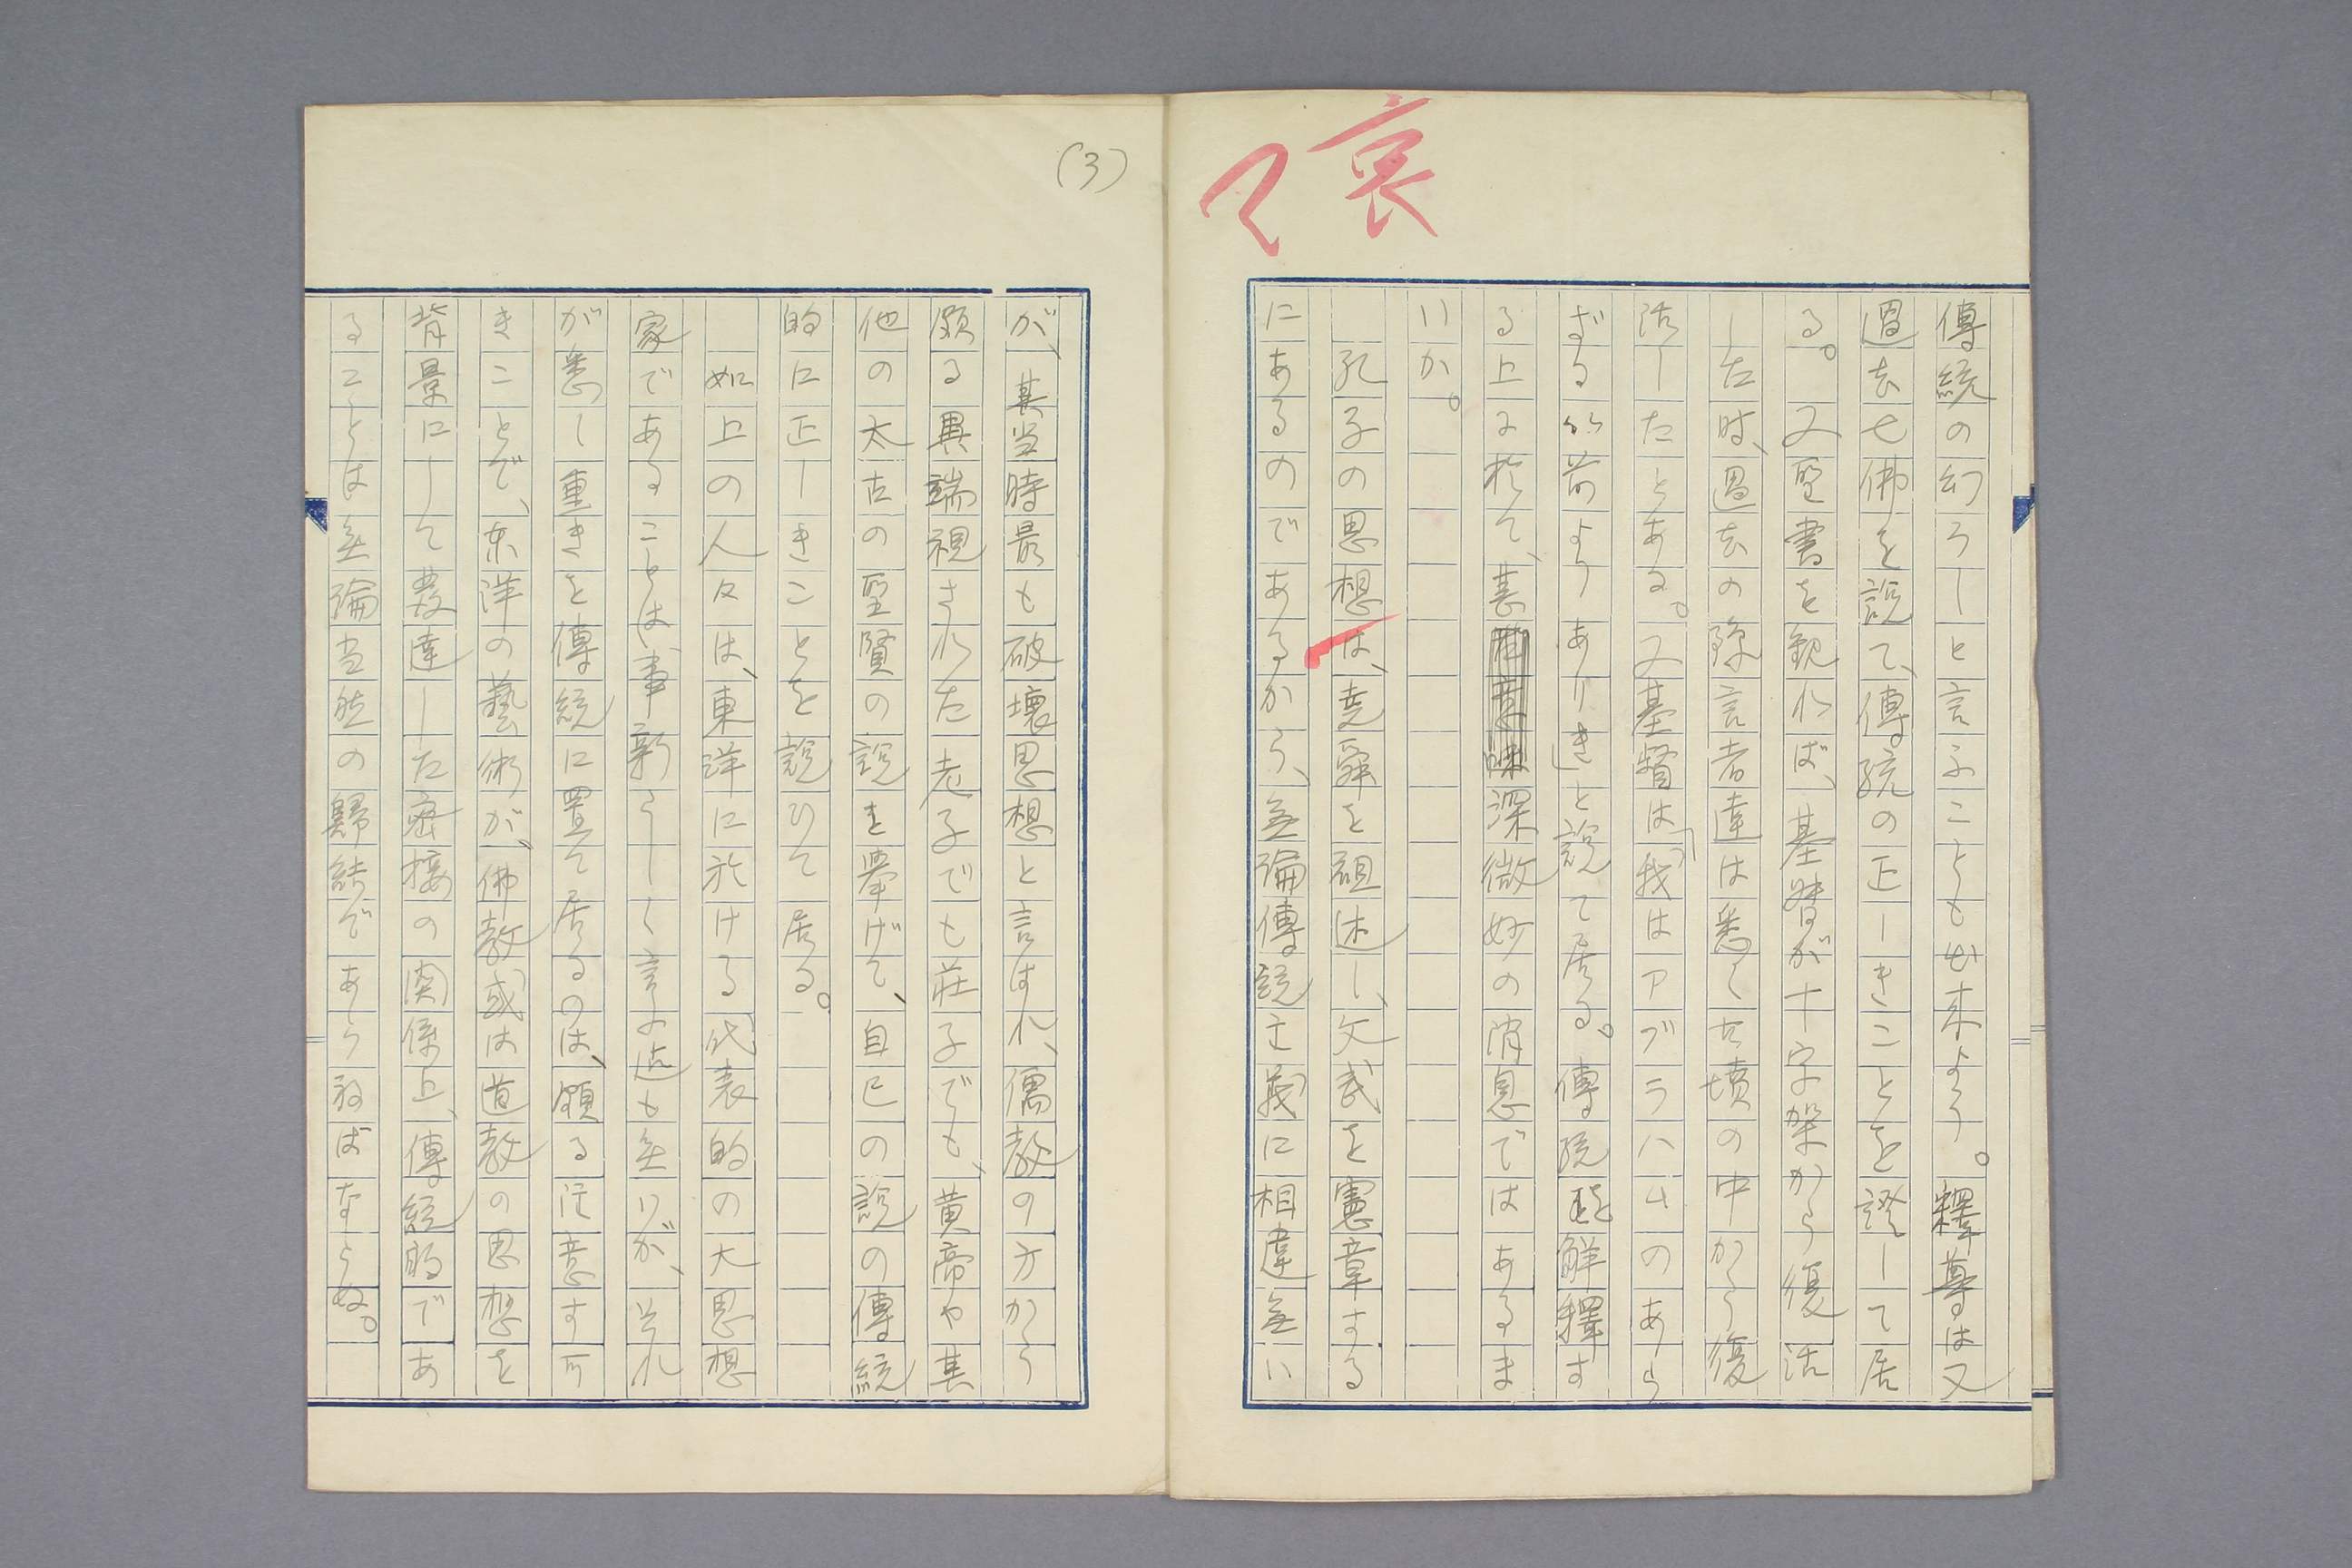 傳統の幻ろしと言ふことも出来よう。釋尊は又
過去七佛を説て、傳統の正しきことを證して居
る。又聖書を観れば、基督が十字架から復活
した時、過去の豫言者達は悉く古墳の中から復
活したとある。又基督は「我はアブラハムのあら
ざる以前よりありき」と説て居る。傳統 解釋す
る上に於て、甚深微妙の消息ではあるま
いか。
孔子の思想は、堯舜を祖述し、文武を憲章する
にあるのであるから、無論傳説主義に相違無い
(3)
が、其当時最も破壊思想と言はれ、儒教の方から
頗る異端視された老子でも莊子でも、黄帝や其
他の太古の聖賢の説を挙げて、自己の説の傳統
的に正しきことを説ひて居る。
如上の人々は、東洋に於ける代表的の大思想
家であることは、事新らしく言ふ迄も無いが、並れ
が悉く重きを傳統に置て居るのは、頗る注意す可
きことで、東洋の藝術が、佛教或は道教の思想を
背景にして發達した密接の関係上、傳統的であ
ることは無論当然の歸結であらねばならぬ。